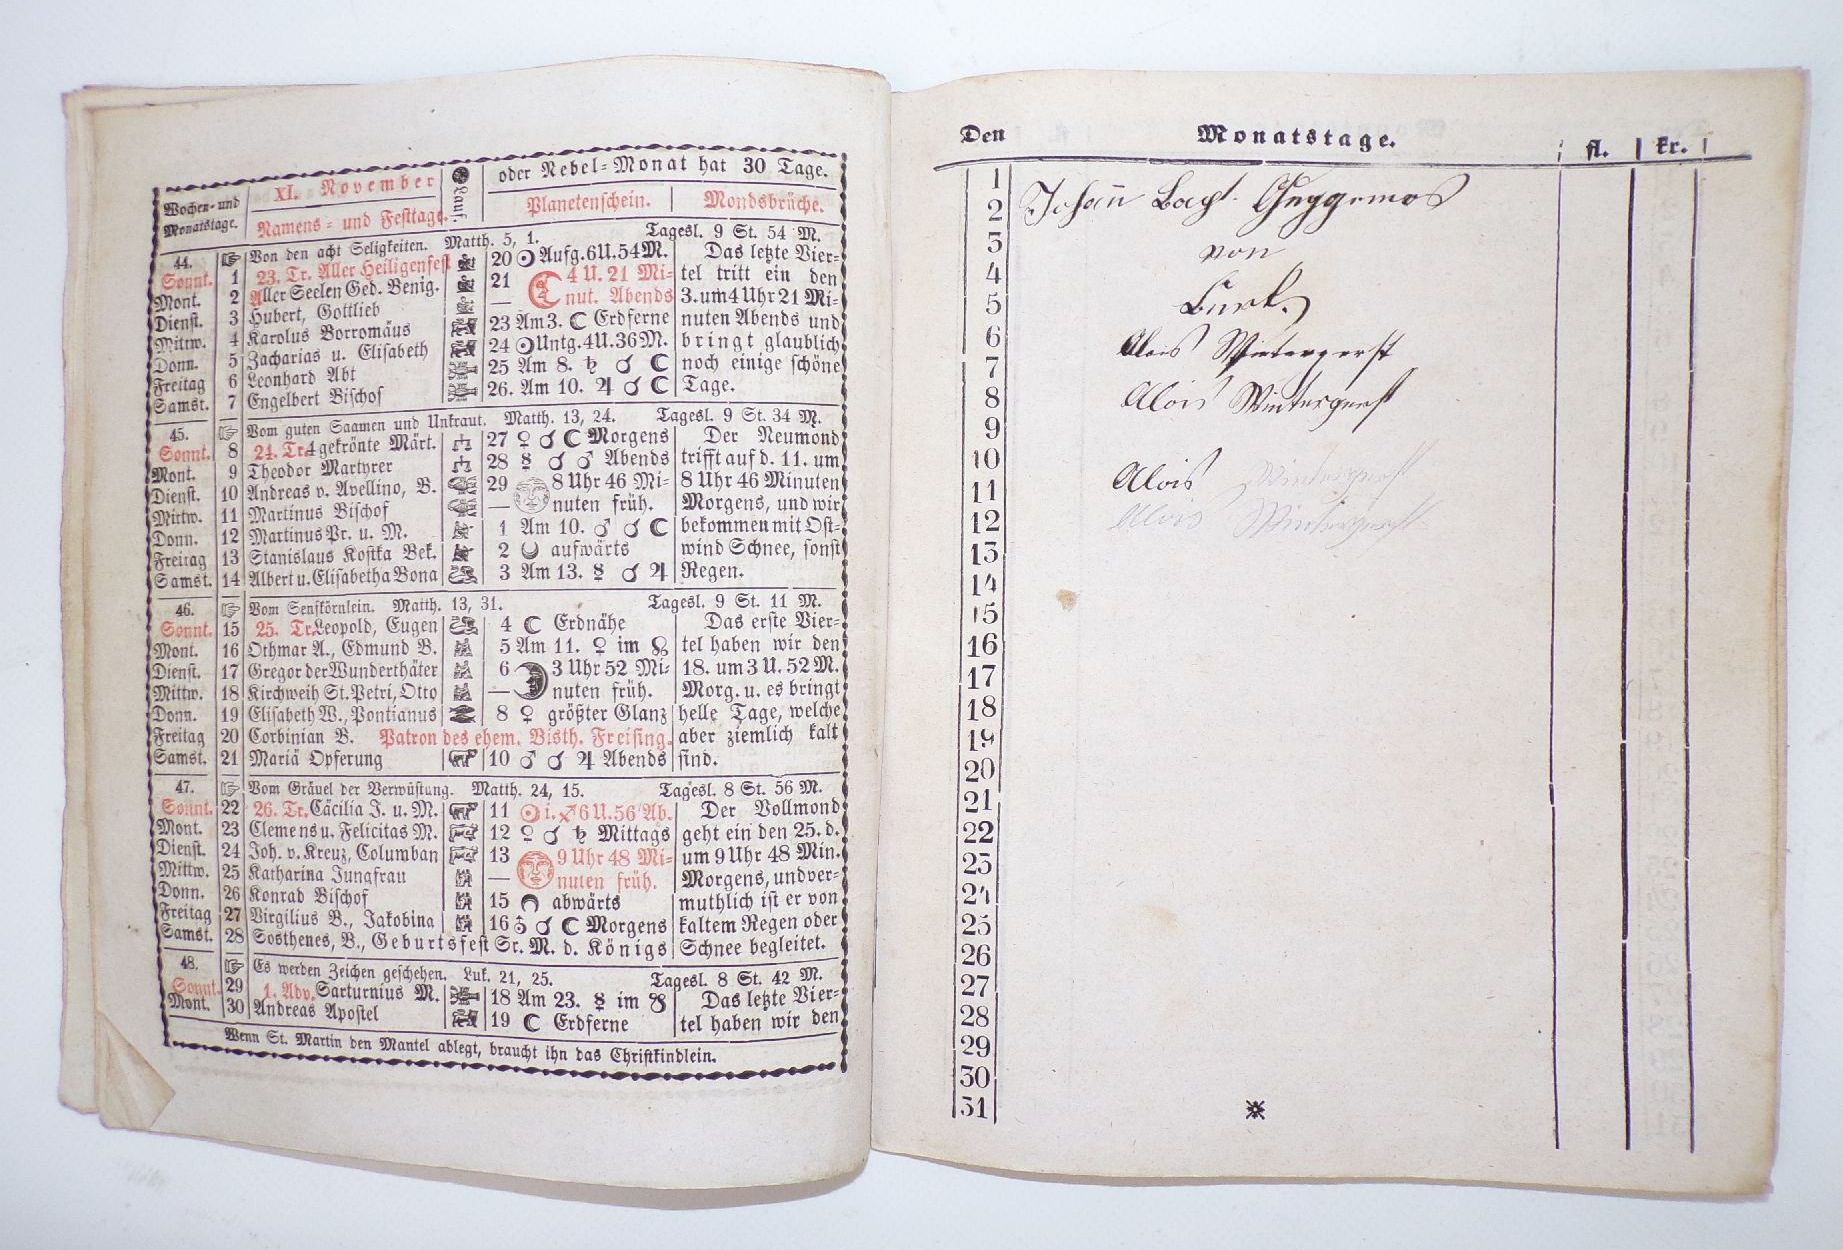 XI. November
oder Nebel-Monat hat 30 Tage.
Wochen- und
Monatstage.
Namens- und Festtage.
Lauf.
Planetenschein.
Mondsbrüche.
44. ☞ Von den acht Seligkeiten. Matth. 5, 1. Tagesl. 9 St. 54 M.
Sonnt. 1 23. Tr. Aller Heiligenfest 20 ☉ Aufg. 6 U. 54 M. Das letzte Vier-
Mont. 2 Aller Seelen Ged. Benig. 21 ☾ 4 U. 21 Mi- tel tritt ein den
Dienst. 3 Hubert, Gottlieb — nut. Abends 3. um 4 Uhr 21 Mi-
Mittw. 4 Karolus Borromäus 23 Am 3. ☾ Erdferne nuten Abends und
Donn. 5 Zacharias u. Elisabeth 24 ☉ Untg. 4 U. 36 M. bringt glaublich
Freitag 6 Leonhard Abt 25 Am 8. ♄ ☌ ☾ noch einige schöne
Samst. 7 Engelbert Bischof 26. Am 10. ♃ ☌ ☾ Tage.
45. ☞ Vom guten Saamen und Unkraut. Matth. 13, 24. Tagesl. 9 St. 34 M.
Sonnt. 8 24. Tr. 4 gekrönte Märt. 27 ♀ ☌ ☾ Morgens Der Neumond
Mont. 9 Theodor Martyrer 28 ☿ ☌ ♂ Abends trifft auf d. 11. um
Dienst. 10 Andreas v. Avellino, B. 29 8 Uhr 46 Mi- 8 Uhr 46 Minuten
Mittw. 11 Martinus Bischof — nuten früh. Morgens, und wir
Donn. 12 Martinus Pr. u. M. 1 Am 10. ♂ ☌ ☾ bekommen mit Ost-
Freitag 13 Stanislaus Kostka Bek. 2 aufwärts wind Schnee, sonst
Samst. 14 Albert u. Elisabetha Bona 3 Am 13. ☿ ☌ ♃ Regen.
46. ☞ Vom Senfkörnlein. Matth. 13, 31. Tagesl. 9 St. 11 M.
Sonnt. 15 25. Tr. Leopold, Eugen 4 ☾ Erdnähe Das erste Vier-
Mont. 16 Othmar A., Edmund B. 5 Am 11. ♀ im ☊ tel haben wir den
Dienst. 17 Gregor der Wunderthäter 6 3 Uhr 52 Mi- 18. um 3 U. 52 M.
Mittw. 18 Kirchweih St. Petri, Otto — nuten früh. Morg. u. es bringt
Donn. 19 Elisabeth W., Pontianus 8 ♀ größter Glanz helle Tage, welche
Freitag 20 Corbinian B. Patron des ehem. Bisth. Freising. aber ziemlich kalt
Samst. 21 Mariä Opferung 10 ♂ ☌ ♃ Abends sind.
47. ☞ Vom Gräuel der Verwüstung. Matth. 24, 15. Tagesl. 8 St. 56 M.
Sonnt. 22 26. Tr. Cäcilia J. u. M. 11 ☉ i. ♐ 6 U. 56 Ab. Der Vollmond
Mont. 23 Clemens u. Felicitas M. 12 ♀ ☌ ♄ Mittags geht ein den 25. d.
Dienst. 24 Joh. v. Kreuz, Columban 13 9 Uhr 48 Mi- um 9 Uhr 48 Min.
Mittw. 25 Katharina Jungfrau — nuten früh. Morgens, und ver-
Donn. 26 Konrad Bischof 15 abwärts muthlich ist er von
Freitag 27 Virgilius B., Jakobina 16 ☌ ☾ Morgens kaltem Regen oder
Samst. 28 Sosthenes, B., Geburtsfest Sr. M. d. Königs Schnee begleitet.
48. ☞ Es werden Zeichen geschehen. Luk. 21, 25. Tagesl. 8 St. 42 M.
Sonnt. 29 1. Adv. Sarturnius M. 18 Am 23. ☿ im ☋ Das letzte Vier-
Mont. 30 Andreas Apostel 19 ☾ Erdferne tel haben wir den
Wenn St. Martin den Mantel ablegt, braucht ihn das Christkindlein.
Den Monatstage. fl. kr.
1
2 Johann Bapt. Guggemos
3 von
4
5
6
7 Alois Wintergerst
8 Alois Wintergerst
9
10
11 Alois Wintergerst
12 Alois Wintergerst
13
14
15
16
17
18
19
20
21
22
23
24
25
26
27
28
29
30
31